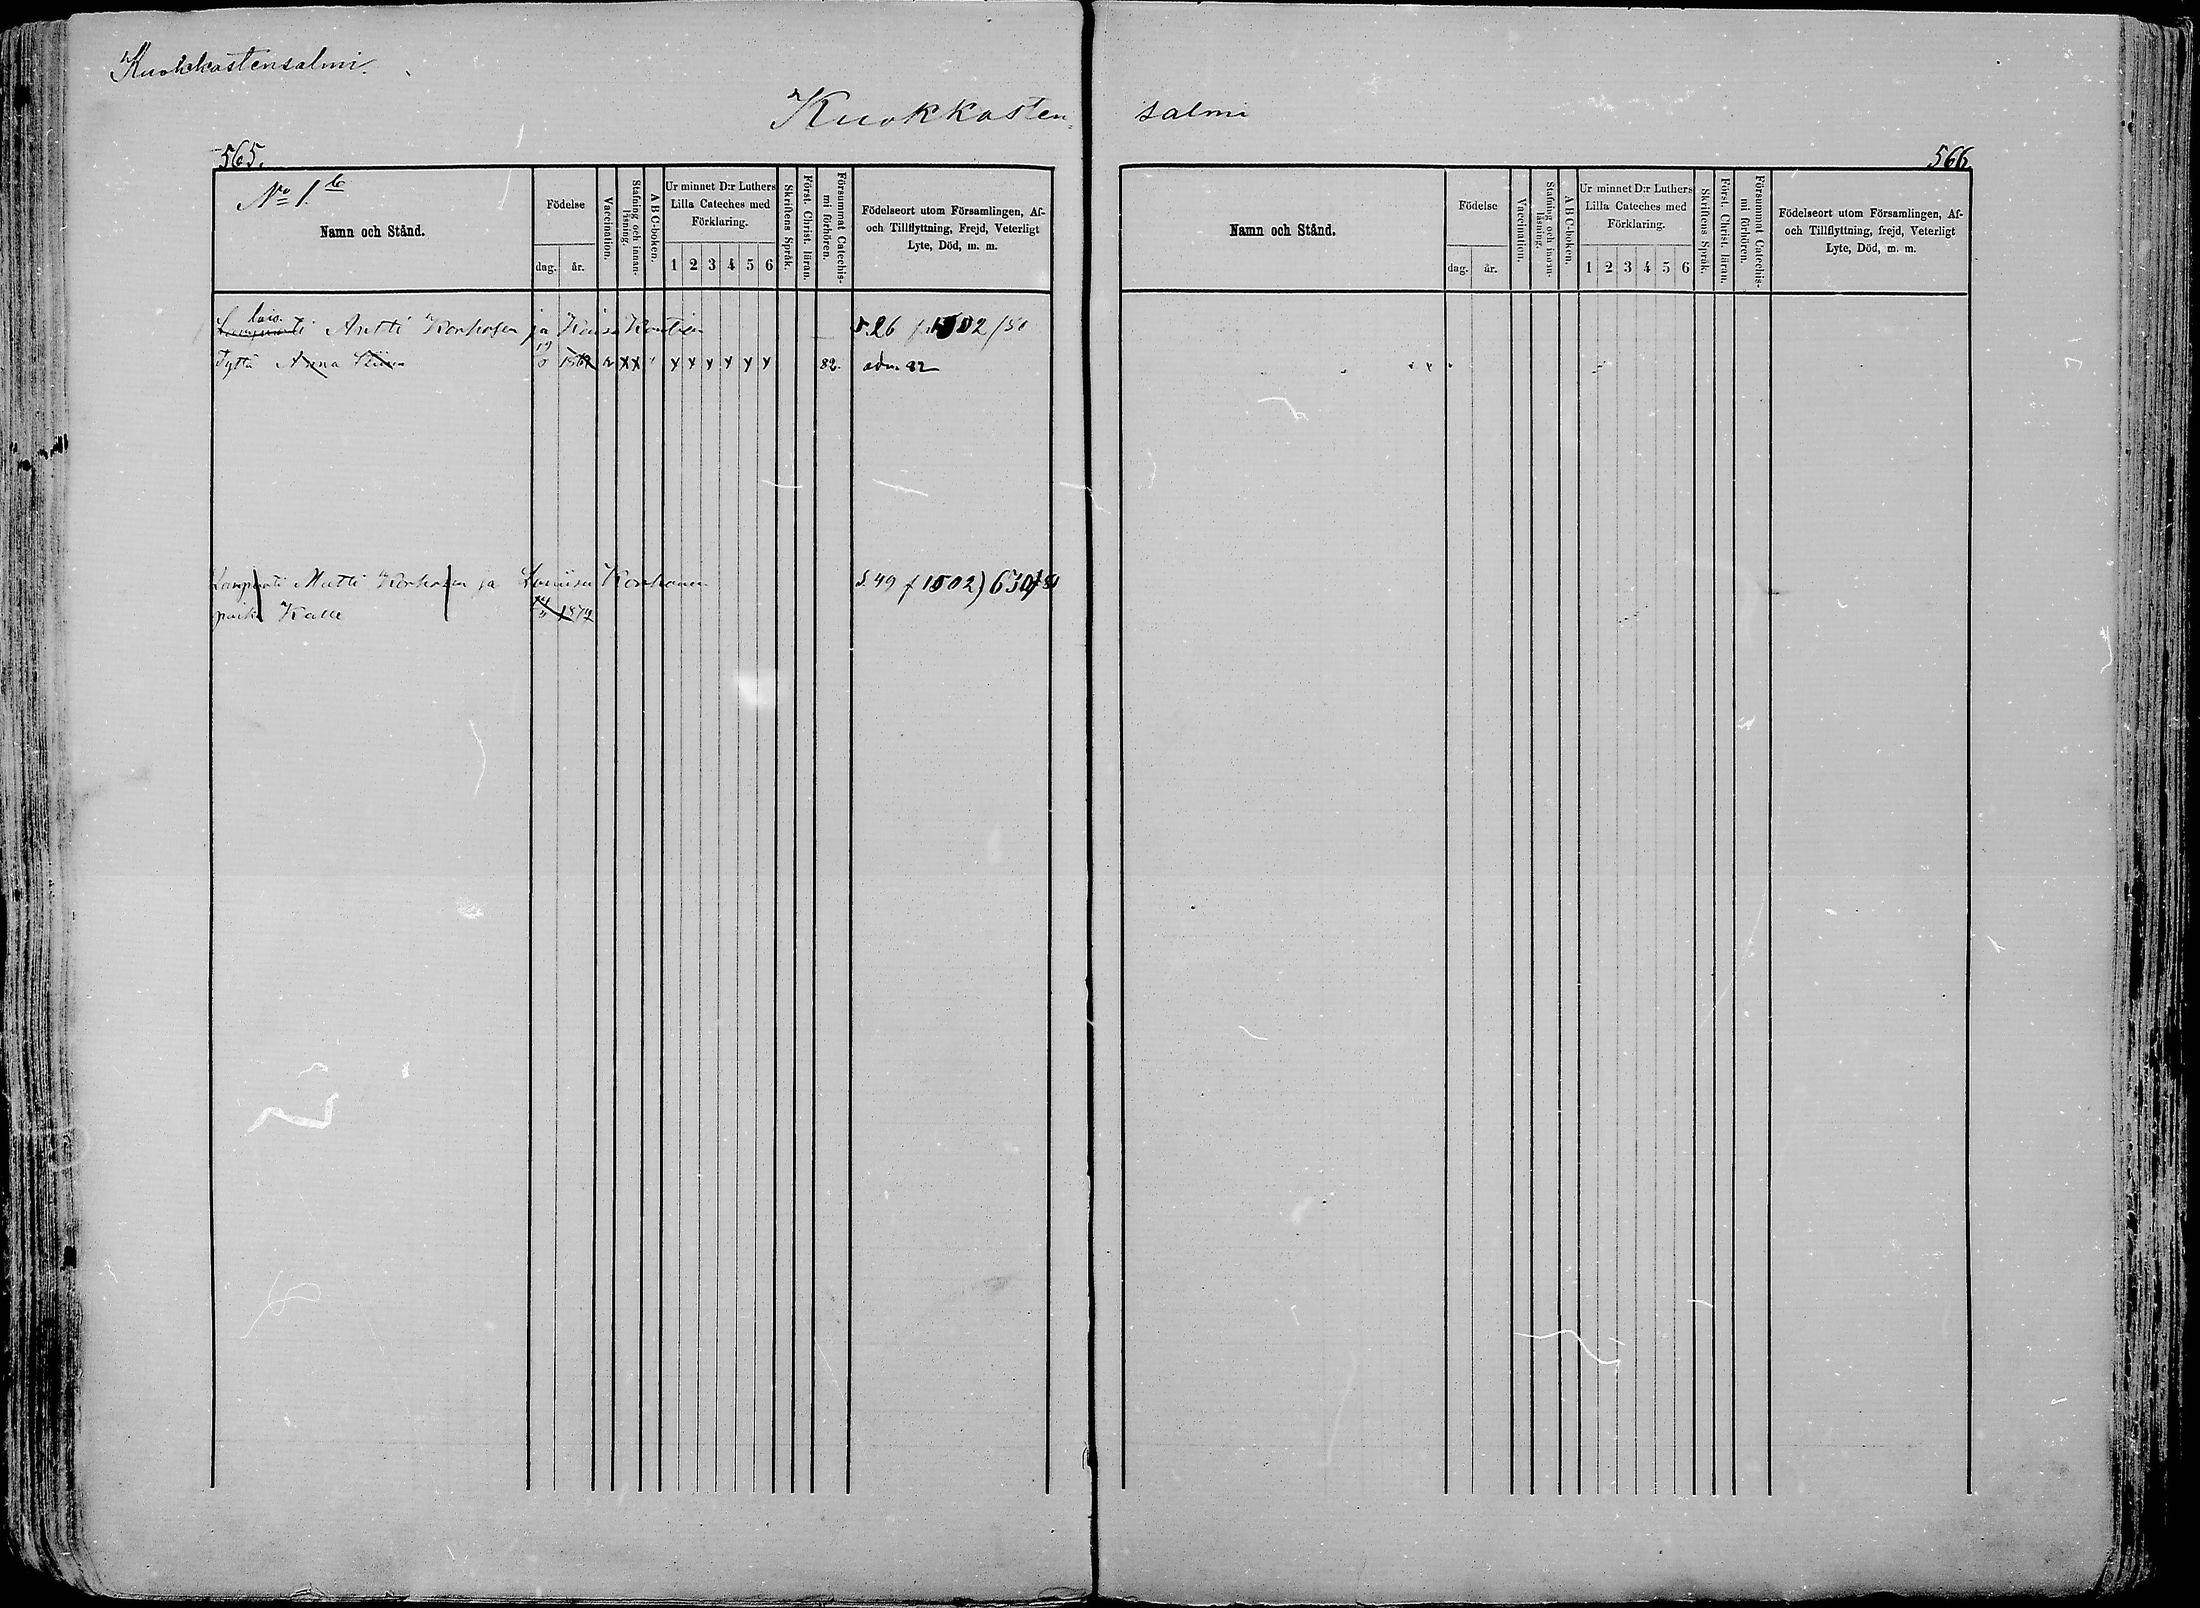 Kuokkastensalmi.
Kuokkasten
salmi
565.
566
No 1. b
Namn och Stånd.
Födelse
dag.
år.
Vaccination.
Stafning och innan-
läsning.
A B C-boken.
Ur minnet D:r Luthers
Lilla Cateches med
Förklaring.
1 2 3 4 5 6
Skriftens Språk.
Först. Christ. läran.
Försummat Catechis-
mi förhören.
Födelseort utom Församlingen, Af-
och Tillflyttning, Frejd, Veterligt
Lyte, Död, m. m.
Antti Korhosen ja Kaisa s. 26
Tyttö Anna 19 1867 x x x x x x x x 82. adm. 82
Lampuoti Matti Korhosen ja Loviisa Korhonen s. 49 f 1502) 630/81
poika Kalle 1879
Namn och Stånd.
Födelse
dag.
år.
Vaccination.
Stafning och innan-
läsning.
A B C-boken.
Ur minnet D:r Luthers
Lilla Cateches med
Förklaring.
1 2 3 4 5 6
Skriftens Språk.
Först. Christ. läran.
Försummat Catechis-
mi förhören.
Födelseort utom Församlingen, Af-
och Tillflyttning, frejd, Veterligt
Lyte, Död, m. m.